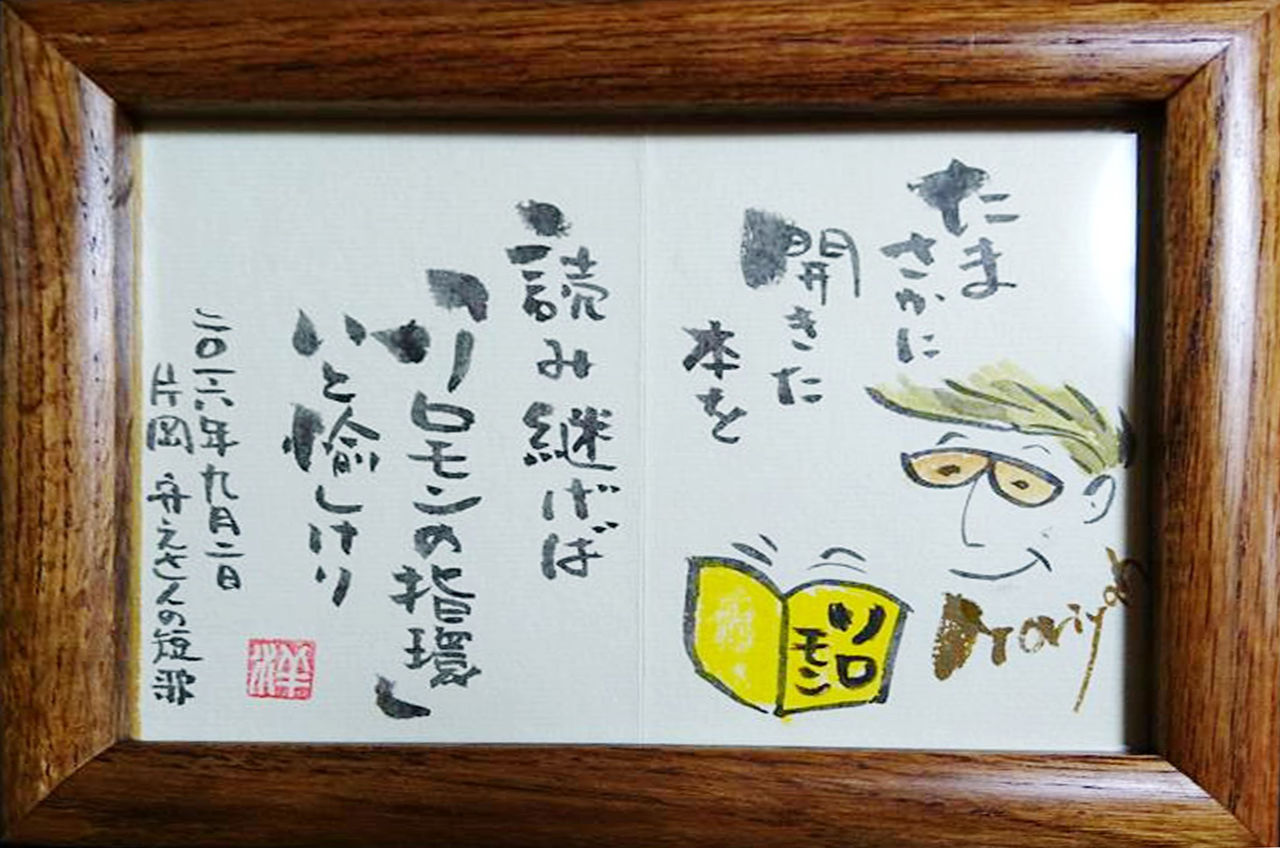 たま
さかに
開きた
本を
読み継げば
「ソロモンの指環」
いと愉しけり
二〇一六年九月二日
片岡 弁えさんの短歌
洋
ソロ
モン